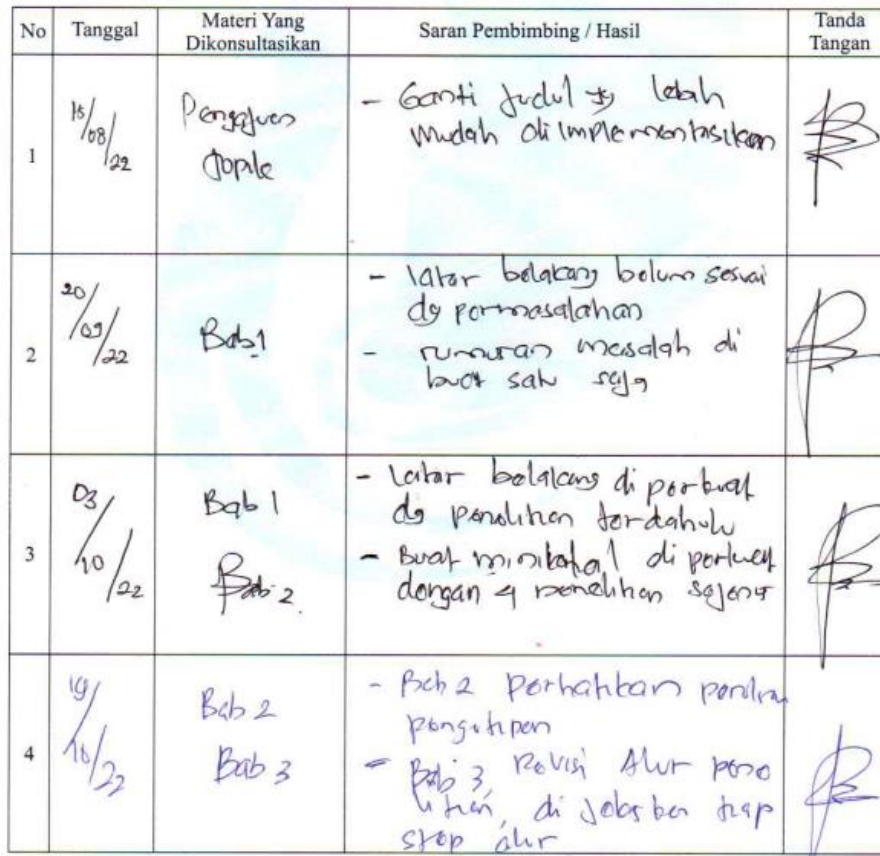 No Tanggal Materi Yang Dikonsultasikan Saran Pembimbing / Hasil Tanda Tangan
1
15/08/22
Pengajuan
Topik
- Ganti Judul yg lebih
mudah di implementasikan
2
20/09/22
Bab 1
- latar belakang belum sesuai
dg permasalahan
- rumusan masalah di
buat satu saja
3
03/10/22
Bab 1
Bab 2
- latar belakang diperkuat
dg penelitian terdahulu
- Buat minikal diperkuat
dengan 4 penelitian sejenis
4
19/10/22
Bab 2
Bab 3
- Bab 2 Perhatikan
pengutipan
- Bab 3, Revisi Alur pene
litian, di jelaskan tiap
step alur